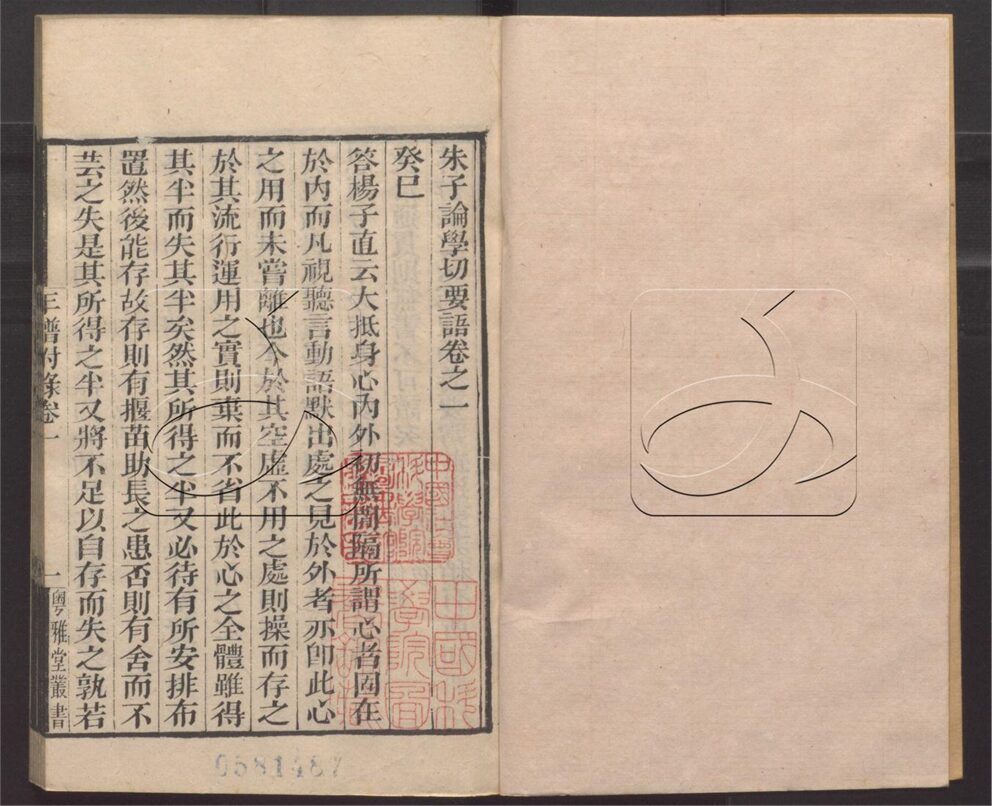 朱子論學切要語卷之一
癸巳
答楊子直云大抵身心內外初無間隔所謂心者固在
於內而凡視聽言動語默出處之見於外者亦卽此心
之用而未嘗離也今於其空虛不用之處則操而存之
於其流行運用之實則棄而不省此於心之全體雖得
其半而失其半矣然其所得之半又必待有所安排布
置然後能存故存則有揠苗助長之患否則有舍而不
芸之失是其所得之半又將不足以自存而失之孰若
附錄卷一
一
粵雅堂叢書
0581487